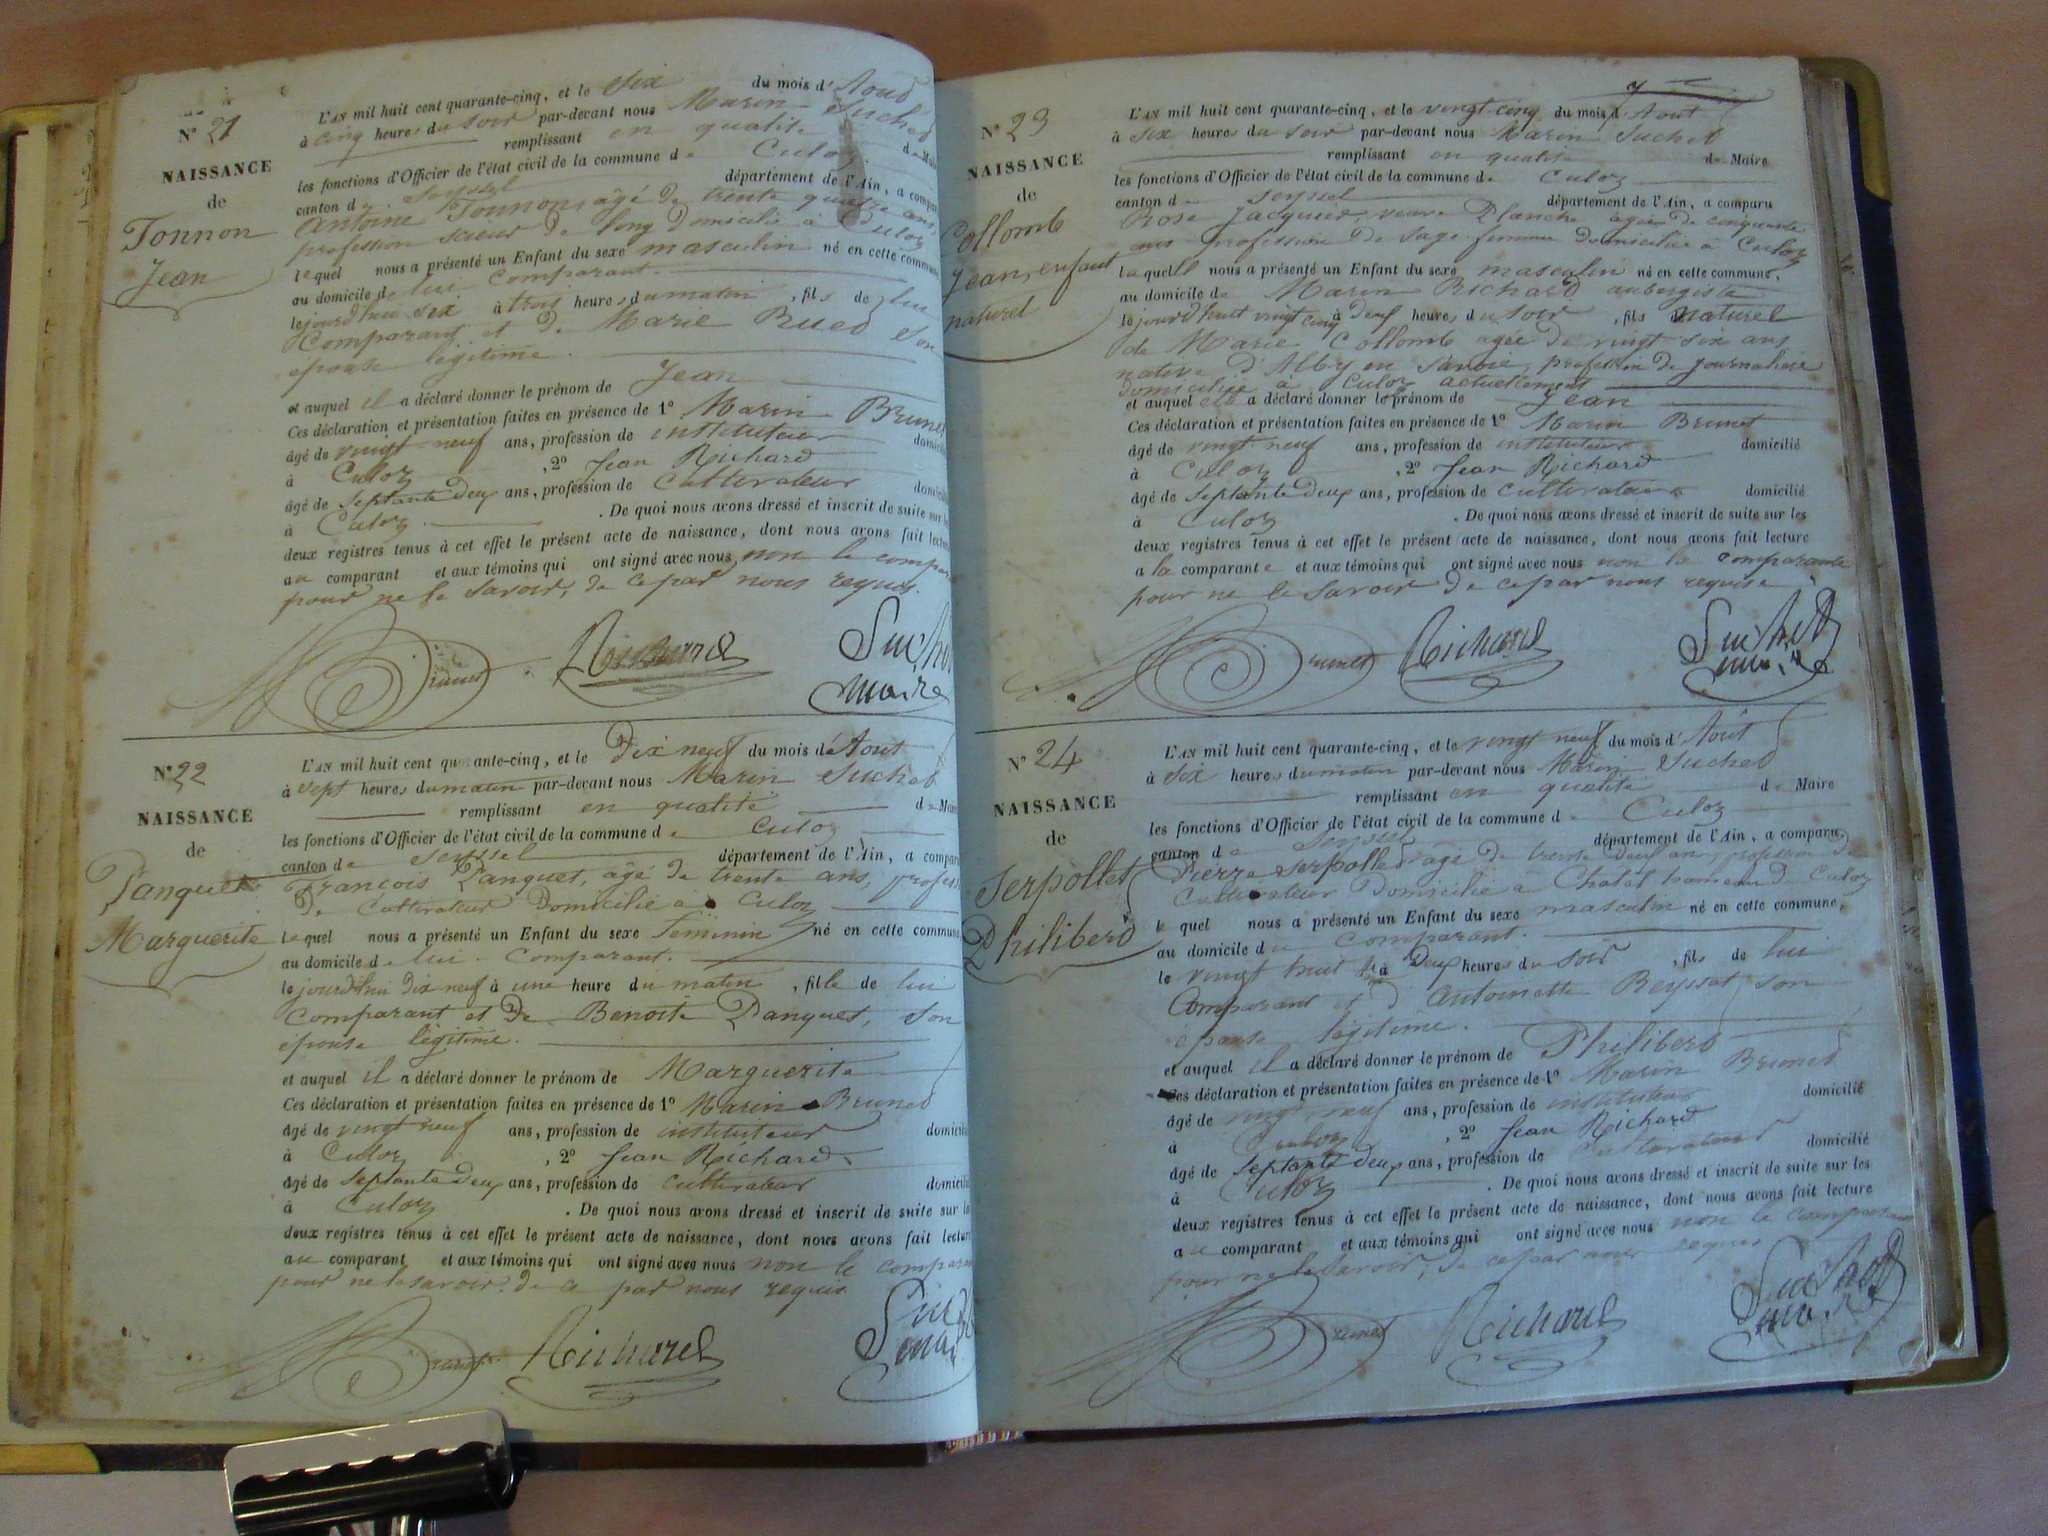 N° 21
NAISSANCE
de
Tonnon
Jean
L'AN mil huit cent quarante-cinq, et le six du mois d'Aout
à cinq heures du soir par-devant nous Marin Suchet
remplissant en qualité de Mai
les fonctions d'Officier de l'état civil de la commune de Culoz
canton de Seyssel département de l'Ain, a compar
Antoine Tonnon, âgé de trente quatre ans,
profession scieur de long domicilié à Culoz
lequel nous a présenté un Enfant du sexe masculin né en cette commun
au domicile de lui comparant.
le jourd'hui six à trois heures du matin, fils de lui
Comparant et de Marie Bued son
épouse légitime.
et auquel il a déclaré donner le prénom de Jean
Ces déclaration et présentation faites en présence de 1° Marin Brunet
âgé de vingt neuf ans, profession de instituteur domicili
à Culoz, 2° Jean Richard
âgé de septante deux ans, profession de cultivateur domicili
à Culoz. De quoi nous avons dressé et inscrit de suite sur les
deux registres tenus à cet effet le présent acte de naissance, dont nous avons fait lectur
au comparant et aux témoins qui ont signé avec nous non le compar
pour ne le savoir, de ce par nous requis.
Brunet Richard Suchet
maire
N° 22
NAISSANCE
de
Panquet
Marguerite
L'AN mil huit cent quarante-cinq, et le Dix neuf du mois d'Aout
à sept heures du matin par-devant nous Marin Suchet
remplissant en qualité de Mair
les fonctions d'Officier de l'état civil de la commune de Culoz
canton de Seyssel département de l'Ain, a compar
François Panquet, âgé de trente ans, profess
de Cultivateur Domicilié à Culoz
lequel nous a présenté un Enfant du sexe Féminin né en cette commune
au domicile de lui comparant.
le jourd'hui Dix neuf à une heure du matin, fille de lui
Comparant et de Benoite Panquet, son
épouse légitime.
et auquel il a déclaré donner le prénom de Marguerite
Ces déclaration et présentation faites en présence de 1° Marin Brunet
âgé de vingt neuf ans, profession de instituteur domicilié
à Culoz, 2° Jean Richard
âgé de septante deux ans, profession de cultivateur domicili
à Culoz. De quoi nous avons dressé et inscrit de suite sur le
deux registres tenus à cet effet le présent acte de naissance, dont nous avons fait lectur
au comparant et aux témoins qui ont signé avec nous non le compara
pour ne le savoir de ce par nous requis
Brunet Richard
N° 23
NAISSANCE
de
Collomb
Jean, enfant
naturel
L'AN mil huit cent quarante-cinq, et le vingt-cinq du mois d'Aout
à six heures du soir par-devant nous Marin Suchet
remplissant en qualité de Maire
les fonctions d'Officier de l'état civil de la commune de Culoz
canton de Seyssel département de l'Ain, a comparu
Rose Jacquier veuve Planche agée de cinquante
ans profession de sage femme domiciliée à Culoz
laquelle nous a présenté un Enfant du sexe masculin né en cette commune.
au domicile de Marin Richard aubergiste
le jourd'huit vingt cinq à deux heures du soir, fils naturel
de Marie Collomb agée de vingt six ans
native d'Alby en Savoie, profession de journalière
domiciliée à Culoz actuellement
et auquel elle a déclaré donner le prénom de Jean
Ces déclaration et présentation faites en présence de 1° Marin Brunet
âgé de vingt neuf ans, profession de instituteur domicilié
à Culoz, 2° Jean Richard
âgé de septante deux ans, profession de cultivateur domicilié
à Culoz. De quoi nous avons dressé et inscrit de suite sur les
deux registres tenus à cet effet le présent acte de naissance, dont nous avons fait lecture
a la comparante et aux témoins qui ont signé avec nous non la comparante
pour ne le savoir de ce par nous requise
Brunet Richard Suchet
maire
N° 24
NAISSANCE
de
Serpollet
Philibert
L'AN mil huit cent quarante-cinq, et le vingt neuf du mois d'Aoüt
à six heures du matin par-devant nous Marin Suchet
remplissant en qualité de Maire
les fonctions d'Officier de l'état civil de la commune de Culoz
canton de Seyssel département de l'Ain, a comparu
Pierre Serpollet âgé de trente deux ans, profession de
Cultivateur Domicilié à Chatel hameau de Culoz
lequel nous a présenté un Enfant du sexe masculin né en cette commune,
au domicile du comparant.
le vingt huit à deux heures du soir, fils de lui
Comparant et d'Antoinette Beysset son
épouse légitime.
et auquel il a déclaré donner le prénom de Philibert
Ces déclaration et présentation faites en présence de 1° Marin Brunet
âgé de vingt neuf ans, profession de instituteur domicilié
à Culoz, 2° Jean Richard
âgé de septante deux ans, profession de cultivateur domicilié
à Culoz. De quoi nous avons dressé et inscrit de suite sur les
deux registres tenus à cet effet le présent acte de naissance, dont nous avons fait lecture
au comparant et aux témoins qui ont signé avec nous non le comparant
pour ne le savoir, de ce par nous requis
Brunet Richard Suchet